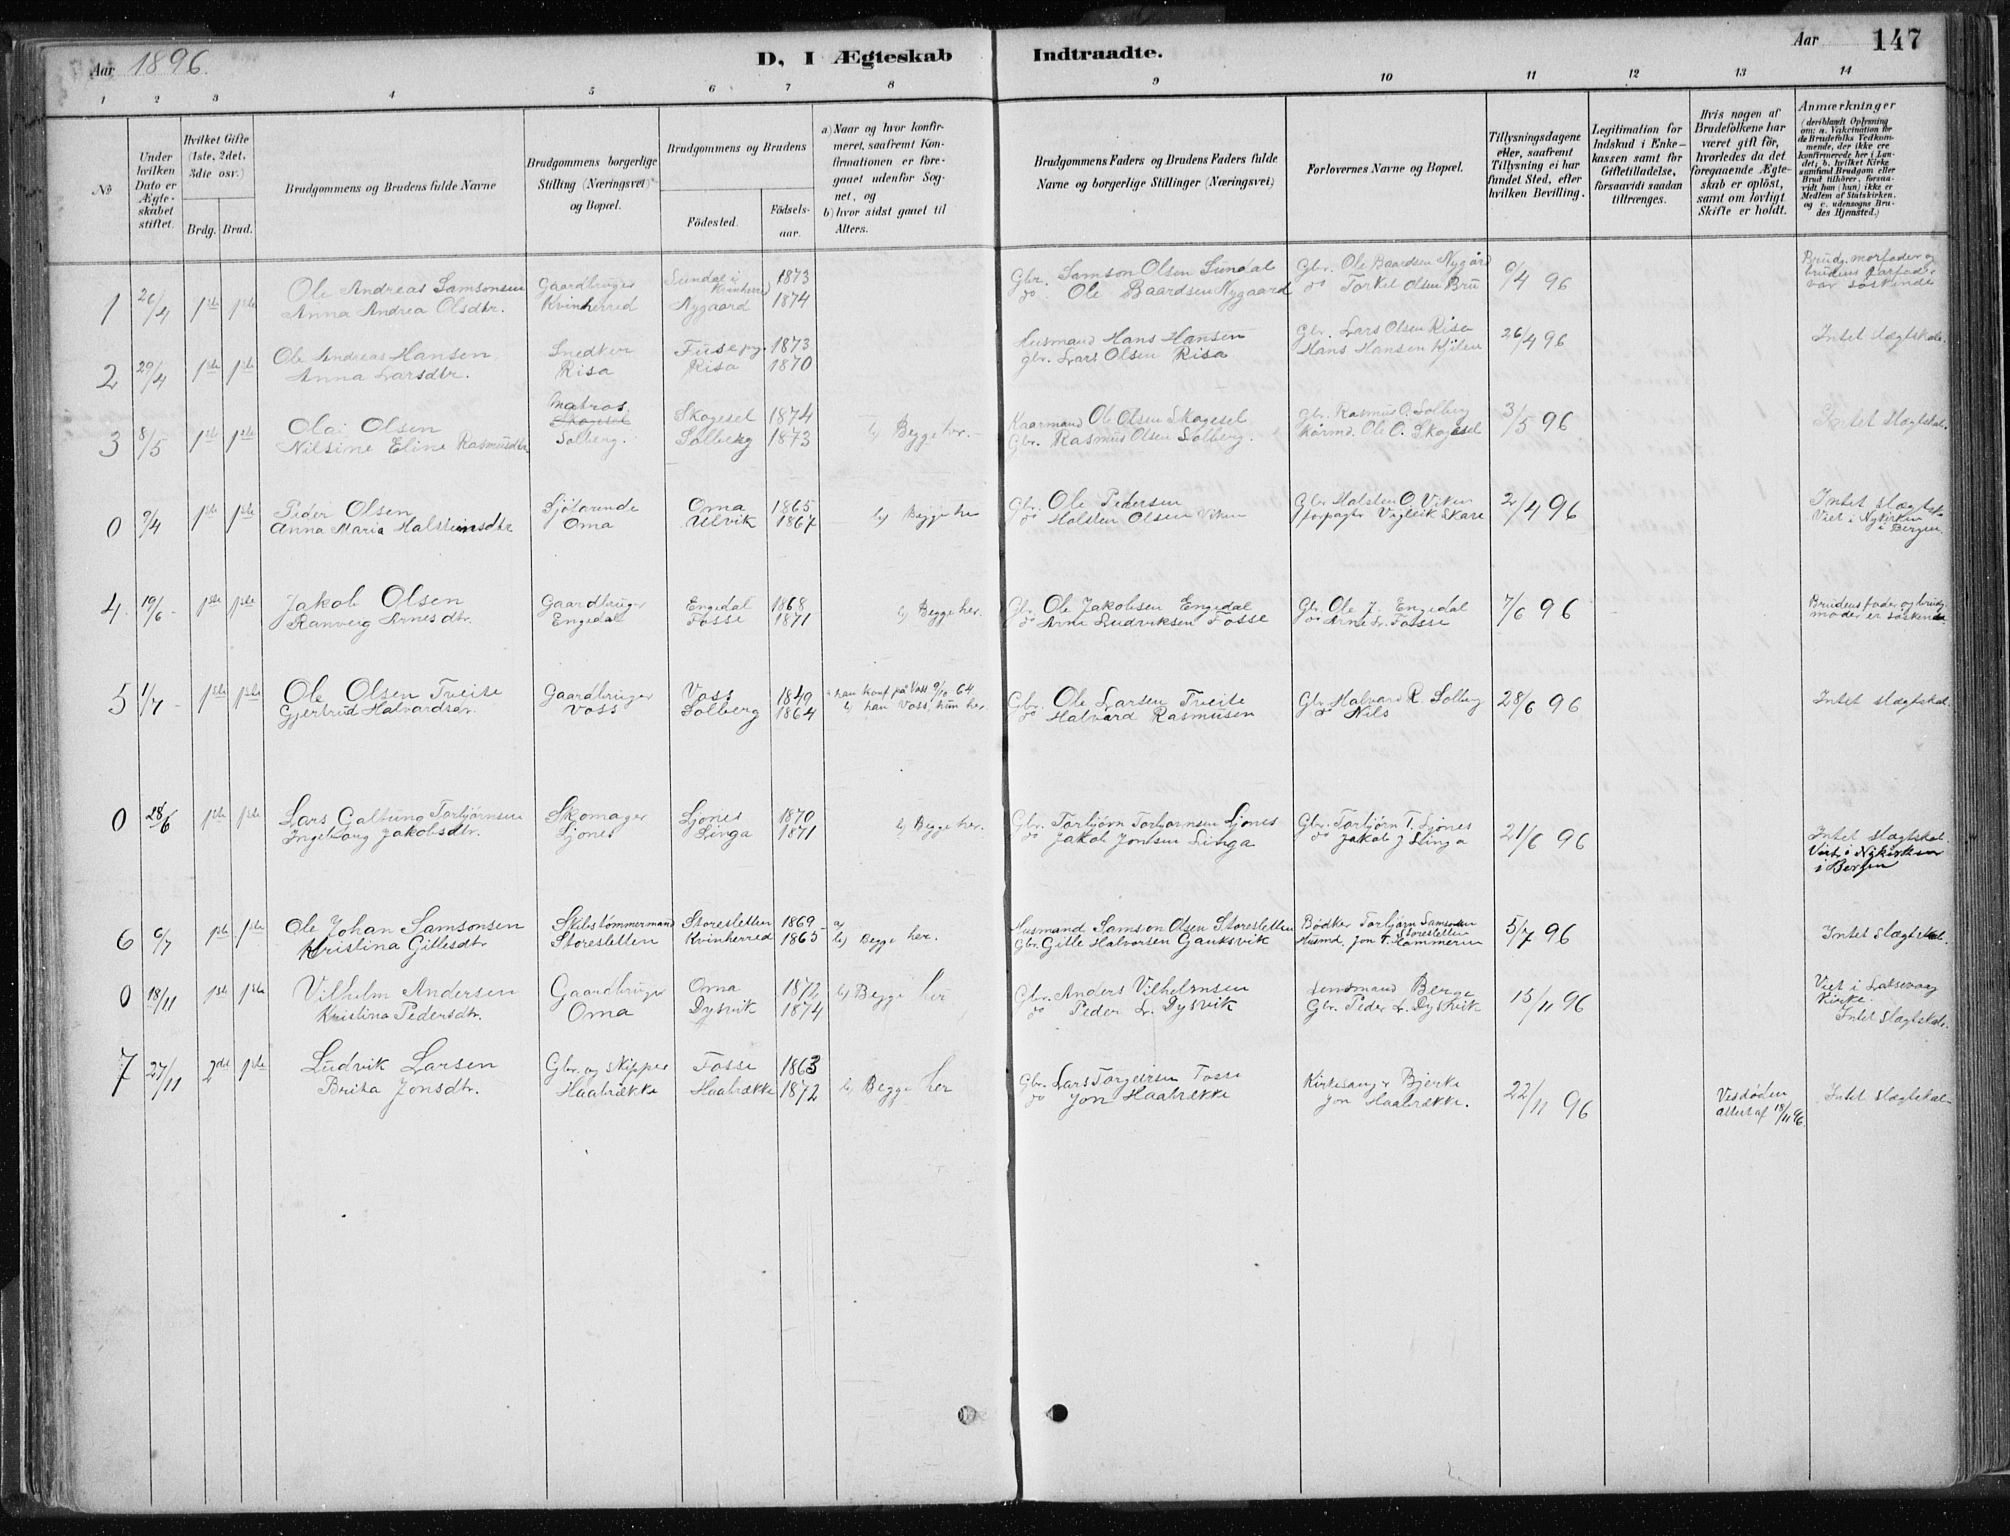 Aar 1896.
D, I Ægteskab Indtraadte.
Aar 147
1 2 3 4 5 6 7 8 9 10 11 12 13 14
No
Under hvilken Dato er Ægteskabet stiftet.
Hvilket Gifte (1ste, 2det, 3die osv.)
Brdg. Brud.
Brudgommens og Brudens fulde Navne
Brudgommens borgerlige Stilling (Næringsvei) og Bopæl.
Brudgommens og Brudens
Fødested. Fødselsaar.
a) Naar og hvor konfirmeret, saafremt Konfirmationen er foregaaet udenfor Sognet, og
b) hvor sidst gaaet til Alters.
Brudgommens Faders og Brudens Faders fulde Navne og borgerlige Stillinger (Næringsvei)
Forlovernes Navne og Bopæl.
Tillysningsdagene eller, saafremt Tillysning ei har fundet Sted, efter hvilken Bevilling.
Legitimation for Indskud i Enkekassen samt for Giftetilladelse, forsaavidt saadan tiltrænges.
Hvis nogen af Brudefolkene har været gift før, hvorledes da det foregaaende Ægteskab er opløst, samt om lovligt Skifte er holdt.
Anmærkninger (deriblandt Oplysning om: a. Vakcination for de Brudefolks Vedkommende, der ikke ere konfirmerede her i Landet; b. hvilket Kirkesamfund Brudgom eller Brud tilhører, forsaavidt han (hun) ikke er Medlem af Statskirken, og c. udensogns Brudes Hjemsted.)
1 26/4 1ste 1ste Ole Andreas Samsonsen Gaardbruger Sundal i Kvinherred 1873 Gbr. Samson Olsen Sundal Gbr. Ole Baardsen Nygård 6/4 96 Brudg. morfader og
Anna Andrea Olsdtr. Kvinherred Nygaard 1874 do Ole Baardsen Nygaard do Torkel Olsen Bru brudens farfader var søskende
2 29/4 1ste 1ste Ole Andreas Hansen Snedker Fuse pgr. 1873 Husmand Hans Hansen Gbr. Lars Olsen Risa 26/4 96 Intet slægtskab.
Anna Larsdtr. Risa Risa 1870 gbr. Lars Olsen Risa Hans Hansen
3 8/5 1ste 1ste Olai Olsen Matros Skogesel Skogesel 1874 b) Begge her. Kaarmand Ole Olsen Skogesel Gbr. Rasmus O. Solberg 3/5 96 Intet slægtskab.
Nilsine Eline Rasmusdtr Solberg. Solberg 1873 Gbr. Rasmus Olsen Solberg. Kårmd. Ole O. Skogesel
0 9/4 1ste 1ste Peder Olsen Sjøfarende Oma 1865 b) Begge her Gbr. Ole Pedersen Gbr Halsten O. Viken 2/4 96 Intet slægtsk.
Anna Maria Halsteinsdtr Oma Ulvik 1867 do Halsten Olsen Viken forpagter Vigleik Skare Viet i Nykirken i Bergen.
4. 19/6 1ste 1ste Jakob Olsen Gaardbruger Engedal 1868 b) Begge her. Gbr. Ole Jakobsen Engedal Gbr. Ole J. Engedal 7/6 96 Brudens fader og brudg.
Ranveig Arnesdtr. Engedal Fosse 1871 do Arne Ludviksen Fosse do Arne L. Fosse moder er søskende
5 1/7 1ste 1ste Ole Olsen Tveite Gaardbruger Voss 1849 a han konf på Voss 9/10 64 Gbr. Ole Larsen Tveite Gbr Halvard R. Solberg 28/6 96 Intet slægtskab.
Gjertrud Halvardsdr. Voss Solberg 1864 b) han Voss, hun her. do Halvard Rasmusen do Nils
0 28/6 1ste 1ste Lars Galtung Torbjørnsen Skomager Ljones 1870 b) Begge her. Gbr. Torbjørn Torbjørnsen Ljones Gbr. Torbjørn T. Ljones 21/6 96 Intet slægtskab.
Ingeborg Jakobsdtr. Ljones Linga 1871 do Jakob Jonsen Linga do Jakob J Linga Viet i Nykirken i Bergen
6 6/7 1ste 1ste Ole Johan Samsonsen Skibstømmermand Storesletten 1869 a) Husmand Samson Olsen Storesletten Bødker Torbjørn Samsonsen Storesletten 5/7 96 Intet slægtskab.
Kristina Gillesdtr Storesletten Kvinherred 1865 b) Begge her. Gbr. Gille Halvorsen Gauksvik Husmd. Jon T. Hammeren
0 18/11 1ste 1ste Vilhelm Andersen Gaardbruger Oma 1872 b) Begge her Gbr. Anders Vilhelmsen Lensmand Berge 15/11 96 Viet i Laksevaag Kirke.
Kristina Pedersdtr. Oma Dysvik 1874 do Peder L. Dysvik Gbr. Peder L. Dysvik Intet slægtskab.
7 27/11 2det 1ste Ludvik Larsen Gbr. og Skipper Fosse 1863 b) Begge her Gbr. Lars Torgeirsen Fosse Kirkesanger Bjerke 22/11 96 Ved døden Intet slægtskab.
Brita Jonsdtr. Haabrække Haabrække 1872 do Jon Haabrække Jon Haabrække. attest af 18/11 96.